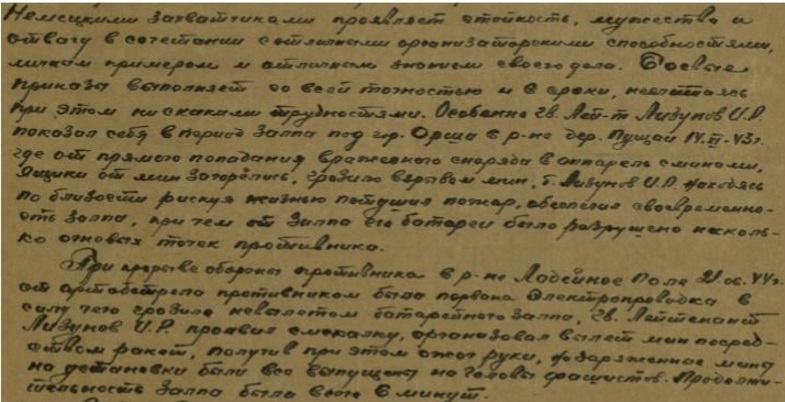 Немецкими захватчиками проявляет стойкость, мужество и
отвагу в сочетании с отличными организаторскими способностями,
личным примером и отличным знанием своего дела. Боевые
приказы выполняет со всей точностью и в сроки, несчитаясь
при этом нискакими трудностями. Особенно гв. Лей-т Лизунов И.Р.
показал себя в период залпа под гор. Орша в р-не дер. Пущай
где от прямого попадания вражеского снаряда в аппарель с минами,
Ящики от мин загорелись, грозило взрывом мин, т. Лизунов И.Р. находясь
по близости рискуя жизнью потушил пожар, обеспечил своевременно-
сть залпа, при чем от залпа его батареи было разрушено несколь-
ко огневых точек противника.
При прорыве обороны противника в р-не Лодейное Поле 21.06.44г.
от артобстрела противником была порвана Электропроводка в
силу чего грозило невылетом батарейного залпа, гв. Лейтенант
Лизунов И.Р. проявил смекалку, организовал вылет мин посред-
ством ракет, получив при этом ожог руки, заряженные мины
на установки были все выпущены на головы фашистов. Продолжи-
тельность залпа была всего 6 минут.